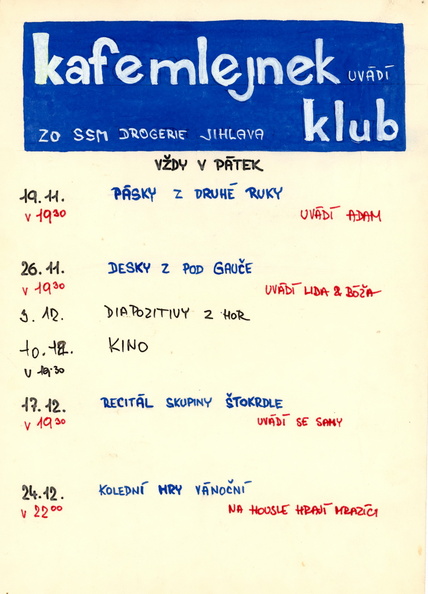 kafemlejnek UVÁDÍ
klub
ZO SSM DROGERIE JIHLAVA
VŽDY V PÁTEK
19.11. PÁSKY Z DRUHÉ RUKY
V 19³⁰ UVÁDÍ ADAM
26.11. DESKY Z POD GAUČE
V 19³⁰ UVÁDÍ LIDA & BÓŽA
3.12. DIAPOZITIVY Z HOR
10.12. KINO
V 19.30
17.12. RECITÁL SKUPINY ŠTOKRDLE
V 19³⁰ UVÁDÍ SE SAMY
24.12. KOLEDNÍ HRY VÁNOČNÍ
V 22⁰⁰ NA HOUSLE HRAJÍ MRAZÍCÍ